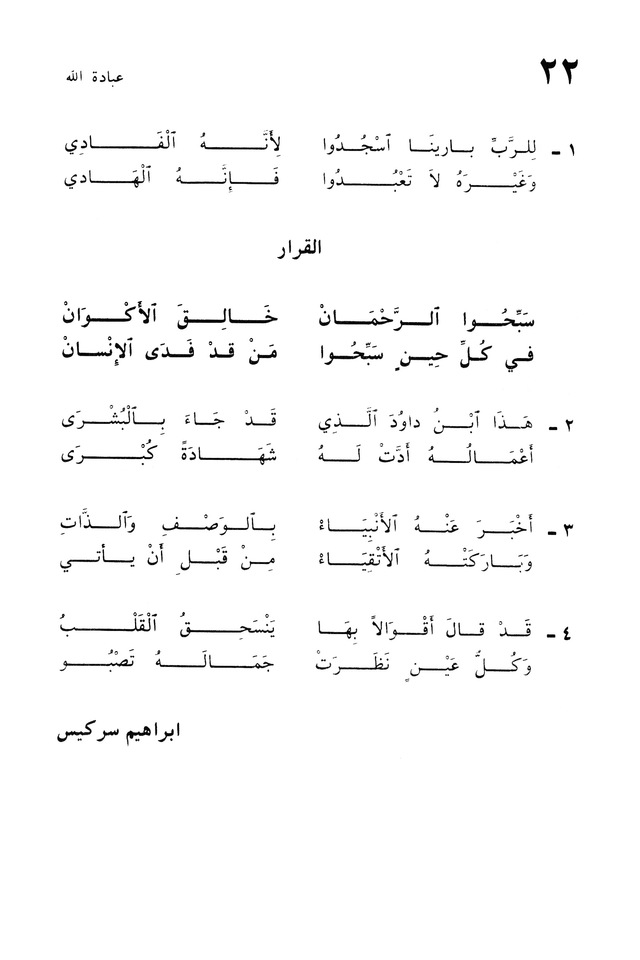 ٢٢ عبادة الله
١ ـ لِلرَّبِّ بارينَا ٱسْجُدُوا لِأَنَّهُ ٱلْفَادِي
وَغَيْرَهُ لاَ تَعْبُدُوا فَإِنَّهُ ٱلْهَادِي
القرار
سَبِّحُوا ٱلرَّحْمَانْ خَالِقَ ٱلأَكْوَانْ
في كُلِّ حِينٍ سَبِّحُوا مَنْ قَدْ فَدَى ٱلإِنْسَانْ
٢ ـ هَذَا ٱبْنُ داوُدَ ٱلَّذِي قَدْ جَاءَ بِٱلْبُشْرَى
أَعْمَالُهُ أَدَّتْ لَهُ شَهَادَةً كُبْرَى
٣ ـ أَخْبَرَ عَنْهُ ٱلأَنْبِيَاءْ بِٱلوَصْفِ وَٱلذَّاتِ
وَبَارَكَتْهُ ٱلأَتْقِيَاءْ مِنْ قَبْلِ أَنْ يأتي
٤ ـ قَدْ قالَ أَقْوَالاً بِهَا يَنْسَحِقُ ٱلْقَلْبُ
وَكُلُّ عَيْنٍ نَظَرَتْ جَمَالَهُ تَصْبُو
ابراهيم سركيس